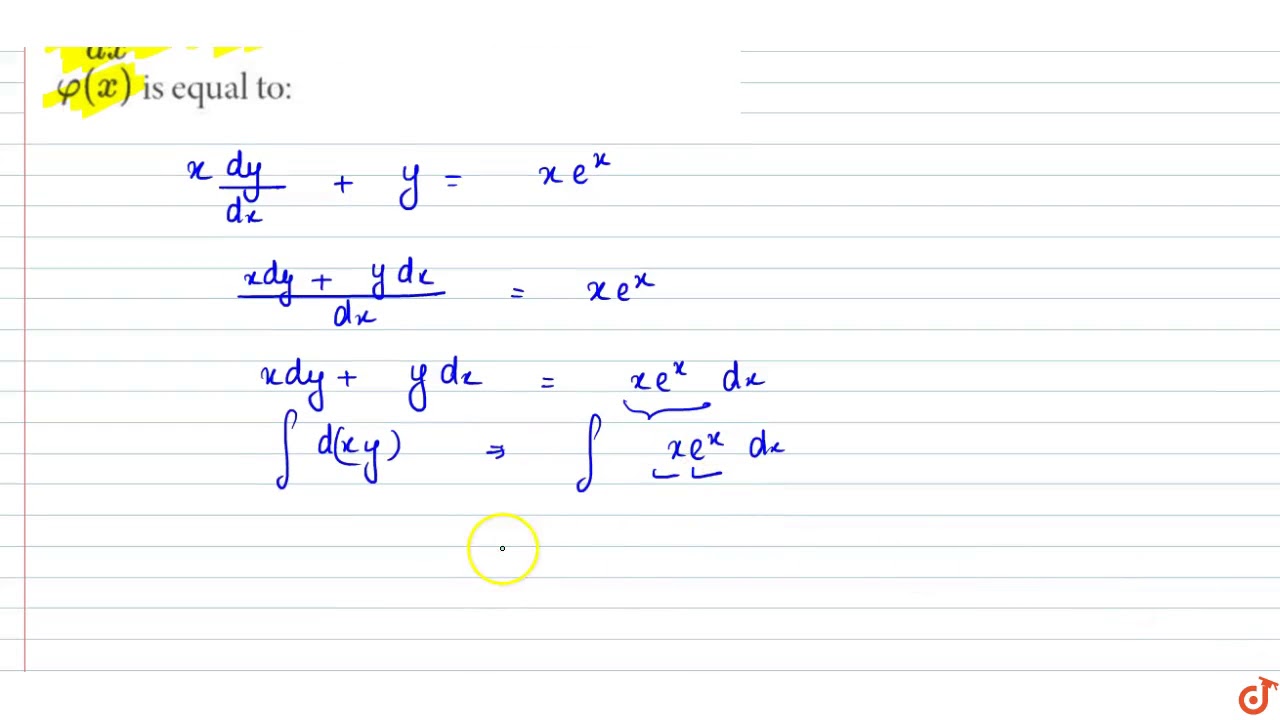 dx
φ(x) is equal to:
x dy/dx + y = x e^x
xdy + y dx / dx = x e^x
xdy + y dx = xe^x dx
∫ d(xy) ⇒ ∫ xe^x dx